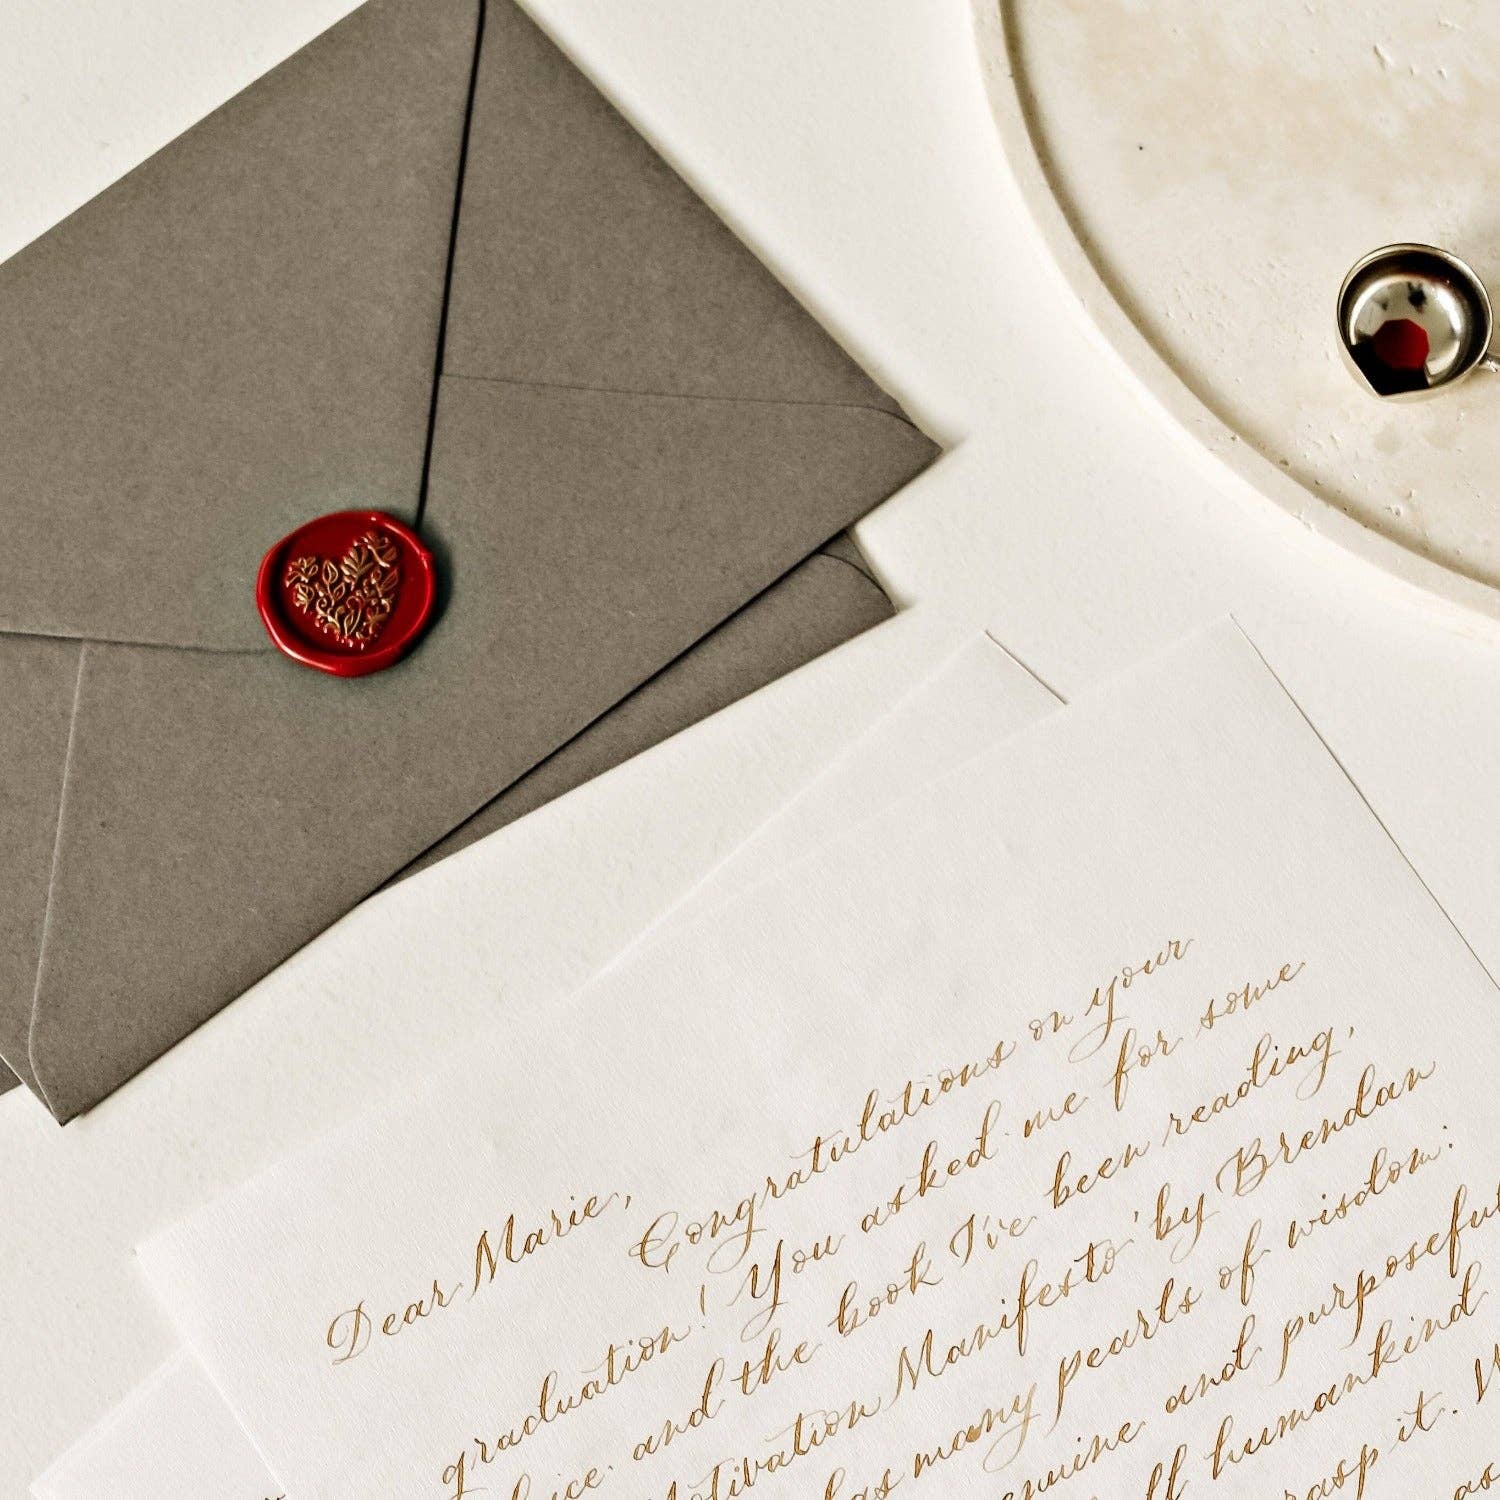 Dear Marie,
Congratulations on your
graduation! You asked me for some
and the book I've been reading,
Motivation Manifesto' by Brendan
has many pearls of wisdom:
genuine and purposeful
humankind
grasp it.